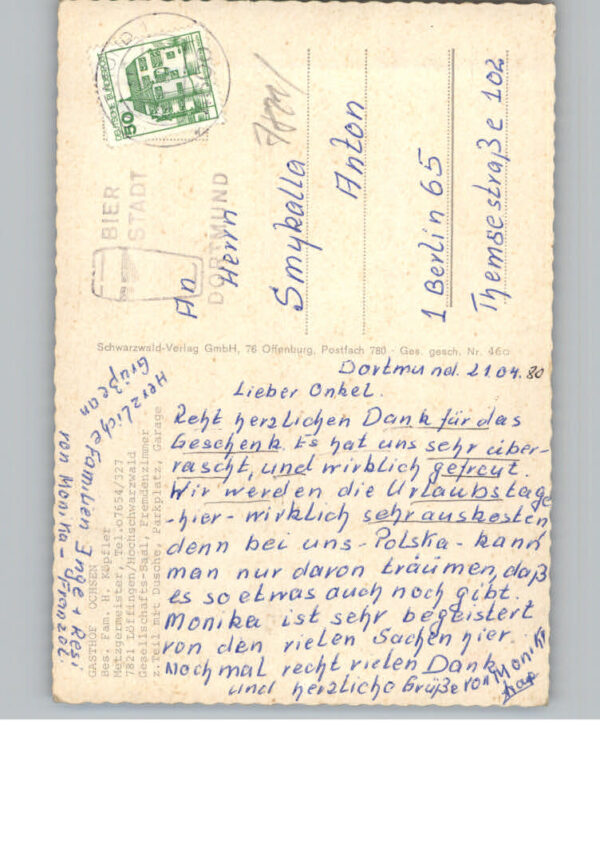 DEUTSCHE BUNDESPOST
50
BIER
STADT
DORTMUND
An
Herrn
Smykalla
Anton
1 Berlin 65
Themsestraße 102
Schwarzwald-Verlag GmbH, 76 Offenburg, Postfach 780 - Ges. gesch. Nr. 460
Dortmund. 21.04.80
Lieber Onkel.
Recht herzlichen Dank für das
Geschenk. Es hat uns sehr über-
rascht, und wirklich gefreut.
Wir werden die Urlaubstage
-hier- wirklich sehr auskosten
denn bei uns - Polska - kann
man nur davon träumen, daß
es so etwas auch noch gibt.
Monika ist sehr begeistert
von den vielen Sachen hier.
Nochmal recht vielen Dank
und herzliche Grüße von Monika
Herzliche
Grüße an
Familien Inge + Resi
von Monika
GASTHOF OCHSEN
Bes. Fam. H. Köpfler
Metzgermeister, Tel.07654/327
7821 Löffingen/Hochschwarzwald
Gesellschafts-Saal, Fremdenzimmer
z.Teil mit Dusche, Parkplatz, Garage